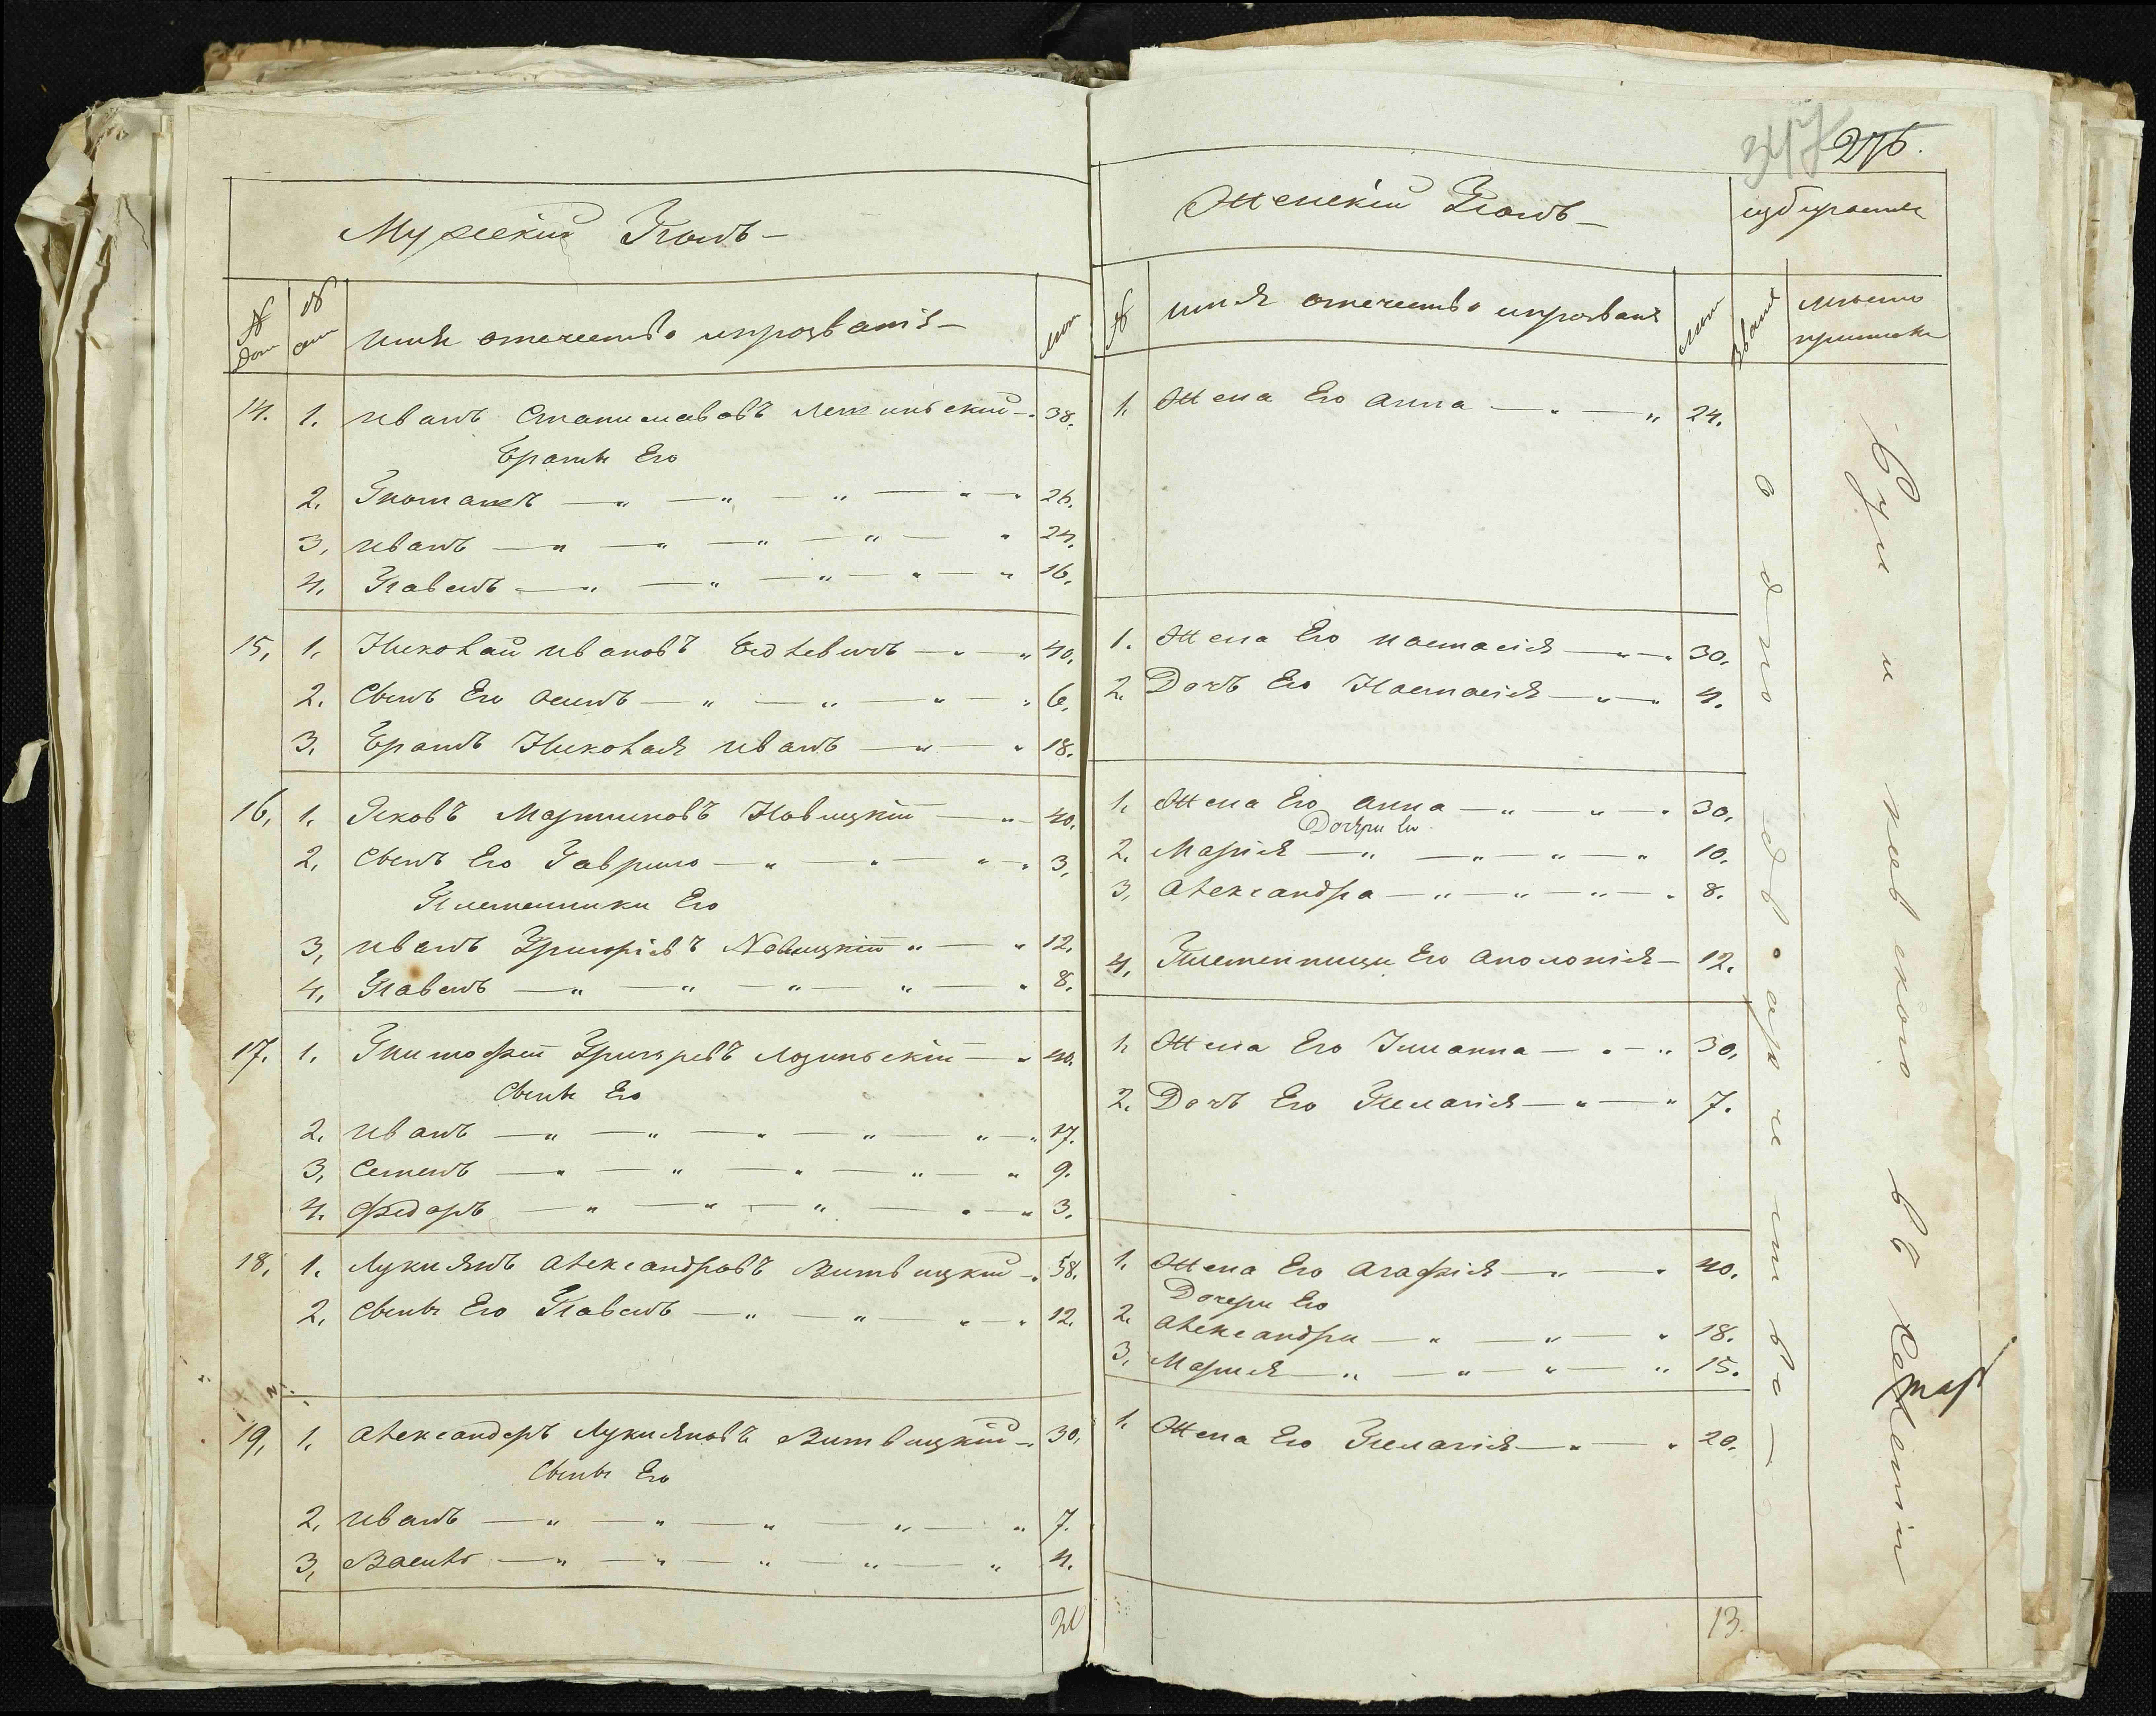 347 276.
Мужескій Полъ —
№ дом № сем имя отечество и прозваніе — лѣт
14. 1. Иванъ Станиславовъ — " 38.
Братья Его
2. Томашъ — " — " — " — " — " 26.
3. Иванъ — " — " — " — " — " 24.
4. Павелъ — " — " — " — " — " 16.
15. 1. Николай Ивановъ — " — " 40.
2. Сынъ Его Осипъ — " — " — " — " 6.
3. Братъ Николая Иванъ — " — " 18.
16. 1. Яковъ Мартиновъ Новицкій — " — 40.
2. Сынъ Его Гаврило — " — " — " — " 3.
Племенники Его
3. Иванъ Григоріевъ Новицкій " — " 12.
4. Павелъ — " — " — " — " — " 8.
17. 1. Тимофей Григорьевъ Лозинскій — " 40.
Сыны Его
2. Иванъ — " — " — " — " — " — " 17.
3. Семенъ — " — " — " — " — " 9.
4. Федоръ — " — " — " — " — " 3.
18. 1. Лукиянъ Александровъ Витвицкій — " 58.
2. Сынъ Его Павелъ — " — " — " — " 12.
19. 1. Александеръ Лукияновъ Витвицкій — " 30.
Сыны Его
2. Иванъ — " — " — " — " — " 7.
3. Василь — " — " — " — " — " 4.
20
Женскій Полъ —
избирает
№ имя отечество и прозваніе лѣт званія место приписки
1. Жена Его Анна — " — " 24.
1. Жена Его Настасія — " — " 30.
2. Дочь Его Настасія — " — " 4.
1. Жена Его Анна — " — " — " 30.
Дочери Ево
2. Марія — " — " — " — " 10.
3. Александра — " — " — " — " 8.
4. Племенница Его Аполонія — 12.
1. Жена Его Іулианна — " — " 30.
2. Дочь Его Пелагія — " — " 7.
1. Жена Его Агафія — " — " 40.
Дочери Его
2. Александра — " — " — " 18.
3. Мария — " — " — " — " 15.
1. Жена Его Пелагія — " — " 20.
13.
однодворчество —